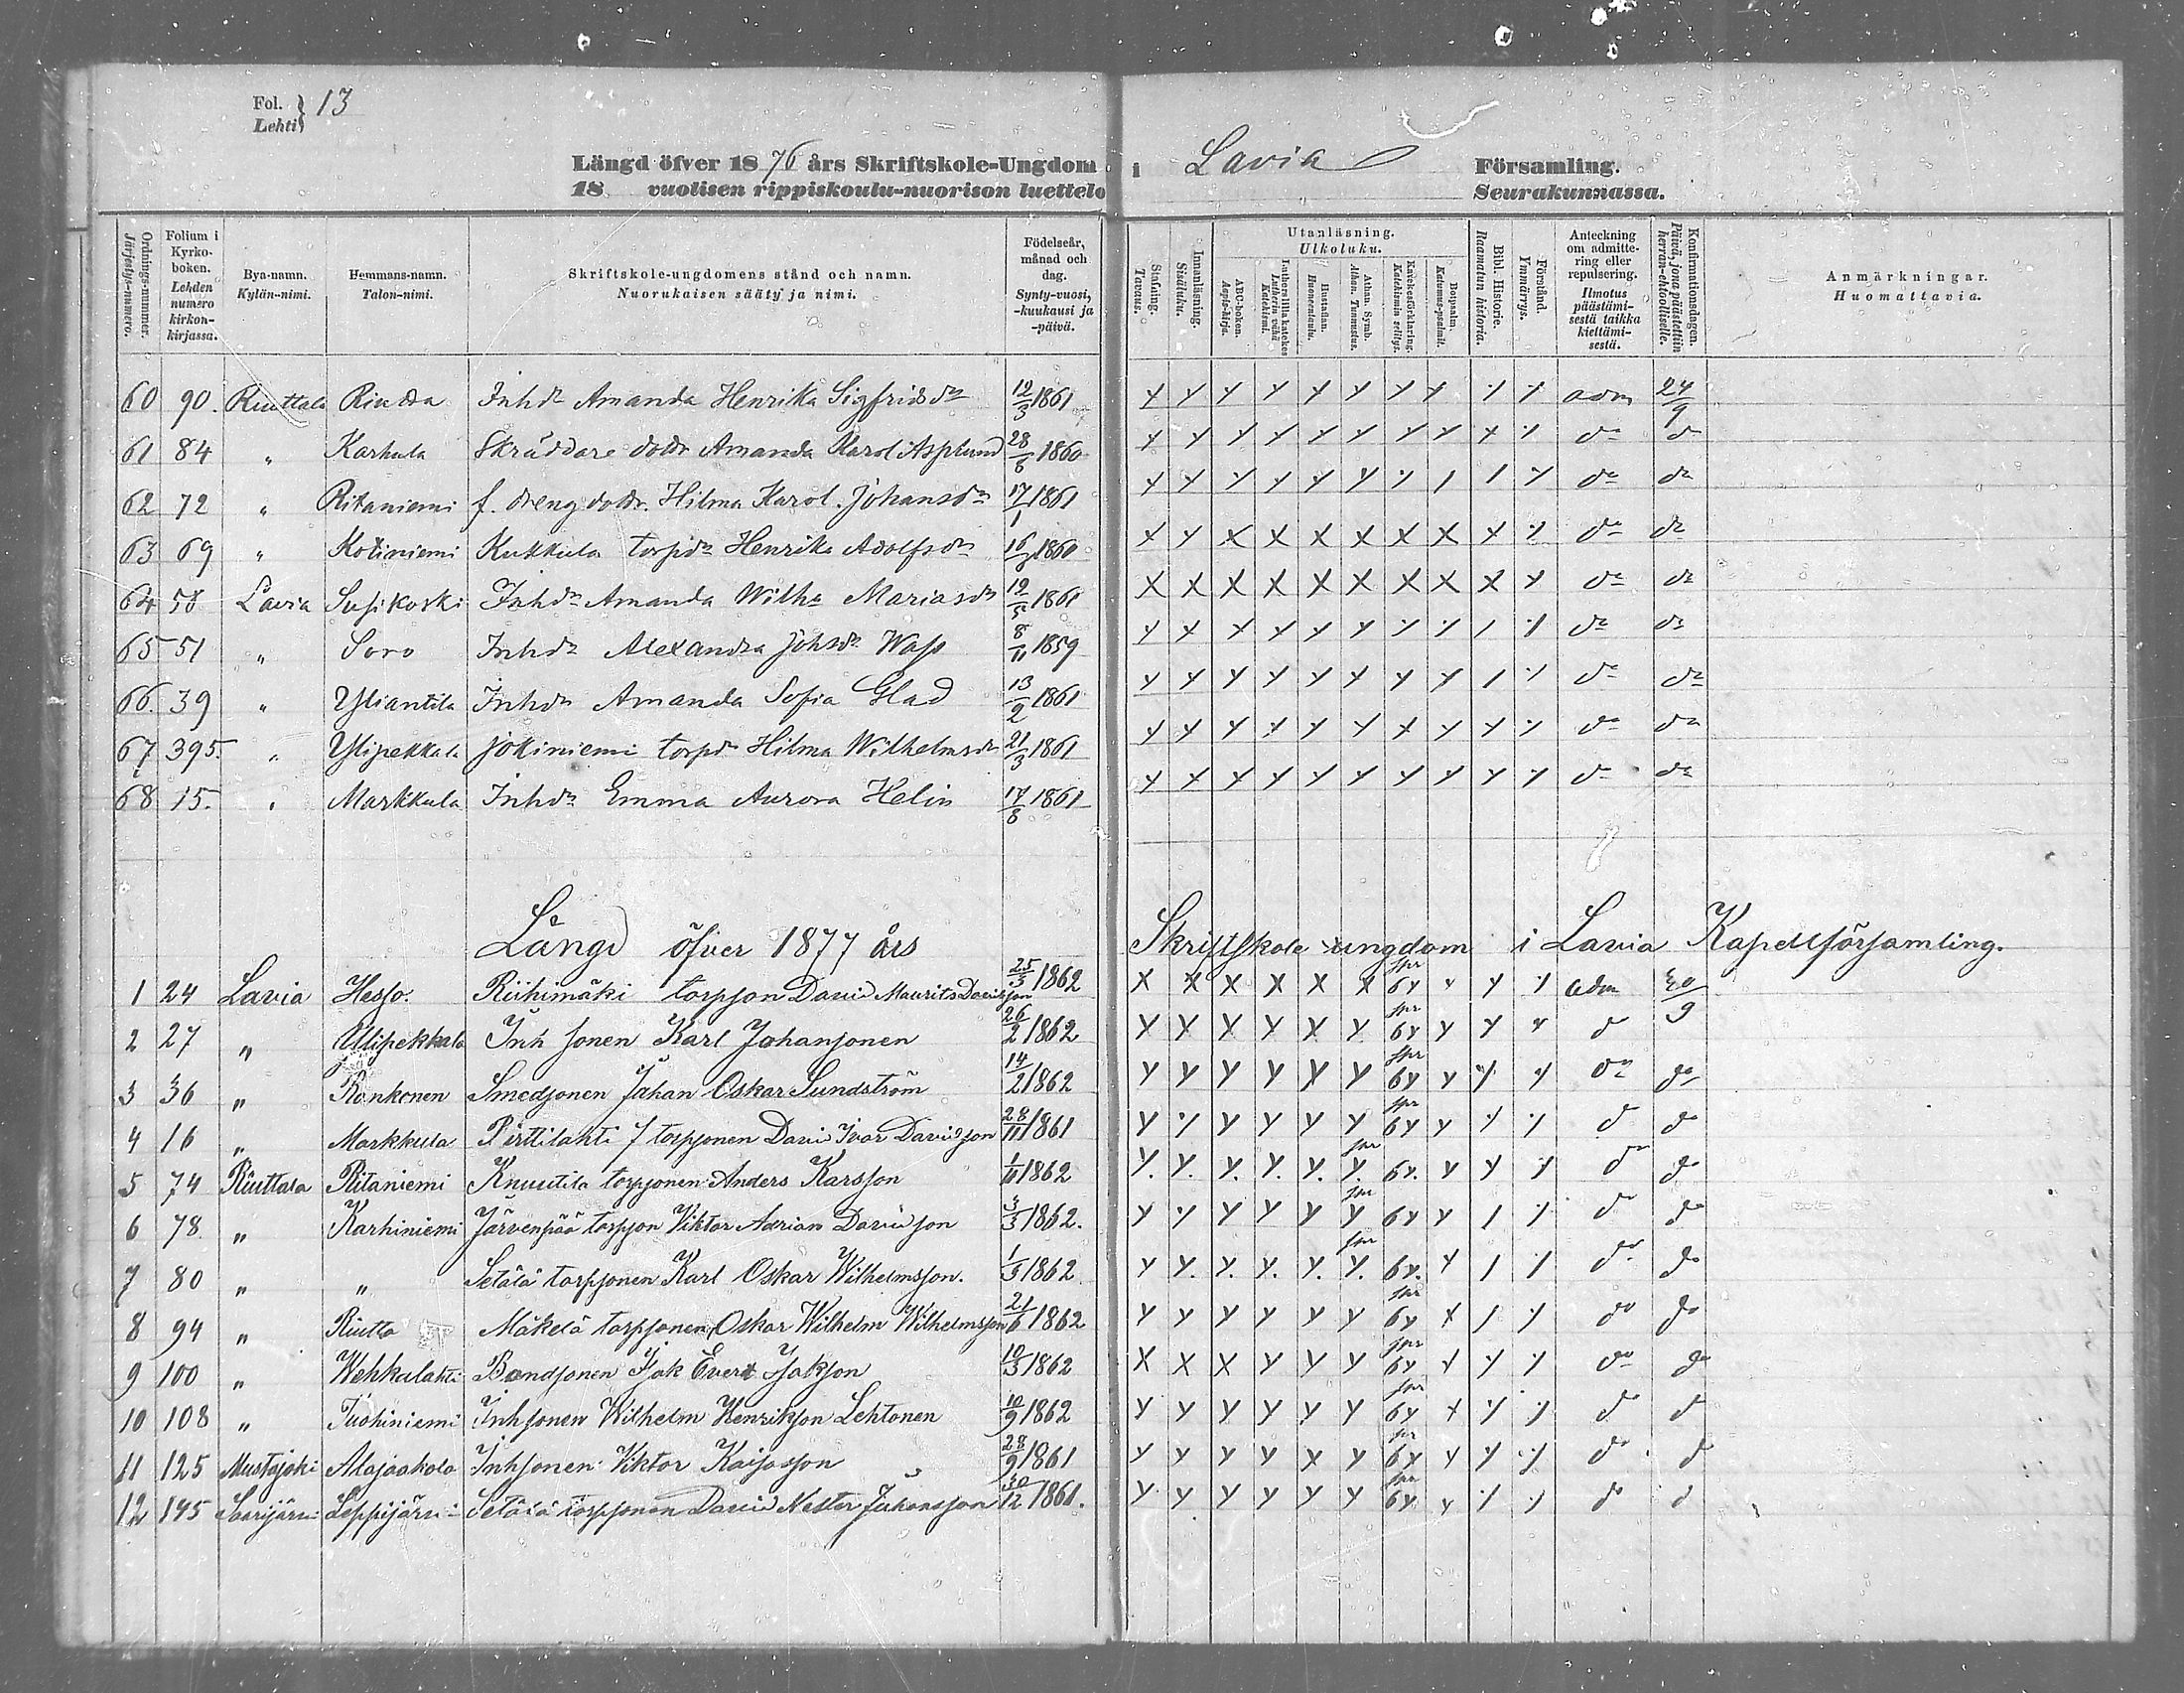 Fol. Lehti } 13
Längd öfver 1876 års Skriftskole-Ungdom i Lavia Församling.
18 vuolisen rippiskoulu-nuorison luettelo Seurakunnassa.
Ordnings-nummer. Järjestys-numero.
Folium i Kyrko-boken. Lehden numero kirkon-kirjassa.
Bya-namn. Kylän-nimi.
Hemmans-namn. Talon-nimi.
Skriftskole-ungdomens stånd och namn. Nuorukaisen sääty ja nimi.
Födelseår, månad och dag. Synty-vuosi, -kuukausi ja -päivä.
Stafning. Tavaus.
Innanläsning. Sisäluku.
Utanläsning. Ulkoluku.
ABC-boken. Aapis-kirja.
Lutheri lilla katekes Lutherin vähä Katekismi.
Hustaflan. Huoneentaulu.
Athan. Symb. Athan. Tunnustus.
Katekesförklaring. Katekismin selitys.
Botpsalm. Katumus-psalmit.
Bibl. Historie. Raamatun historia.
Förstånd. Ymmärrys.
Anteckning om admittering eller repulsering. Ilmotus päästämisestä taikka kieltämisestä.
Konfirmationsdagen. Päivä, jona päästettiin herran-ehtoolliselle.
Anmärkningar. Huomattavia.
60 90. Riuttala Riutta Inhdr Amanda Henrika Sigfridsdr 19/3 1861 y y y y y y y y y y adm 24/9
61 84 " Karhula Skräddare dotr Amanda Karol Asplund 28/6 1860 y y y y y y y y y y do do
62 72 " Ritaniemi f. dreng dotr. Hilma Karol. Johansdr 17/1 1861 y y y y y y y / / y do do
63 69 " Kotiniemi Kukkula torpdr Henrika Adolfsdr 1860 x y x x x x x x y y do do
64 58 Lavia Susikoski Inhdr Amanda Wilha Mariasdr 19/5 1861 x x x x x x x x x y do do
65 51 " Soro Inhdr Alexandra Johsdr Wass 8/11 1859 y y y y y y y y / y do do
66. 39 " Yliantila Inhdr Amanda Sofia Glad 13/2 1861 y y y y y y y y / y do do
67 395. " Ylipekkala Jokiniemi torpdr Hilma Wilhelmsdr 21/3 1861 y y y y y y y y y y do do
68 15. " Markkula Inhdr Emma Aurora Helin 17/8 1861 y y y y y y y y y y do do
Längd öfver 1877 års Skriftskole ungdom i Lavia Kapellförsamling.
1 24 Lavia Hesso. Riihimäki torpson David Maurits Davidsson 25/3 1862 x x x x x x spr 6y " y y adm 30/9
2 27 " Ylipekkala Inh sonen Karl Johansonen 26/2 1862 y y x y x y spr 6y y y y d
3 36 " Ronkonen Smedsonen Johan Oskar Sundström 14/2 1862 y y y y y y spr 6y y y y do do
4 16 " Markkula Pirttilahti f torpsonen David Ivar Davidsson 28/11 1861 y y y y y y spr 6y y y y d do
5 74 Riuttala Ritaniemi Knuutila torpsonen Anders Karsson 1/11 1862 y. y. y. y. y. y. spr 6y. y y y do do
6 78. " Karhiniemi Järvenpää torpson Viktor Adrian Davidson 3/3 1862. y y y y y y spr 6y y / y do do
7 80 " " Setälä torpsonen Karl Oskar Wilhelmsson. 1/5 1862 y y. y. y. y. y. spr 6y. y / y do do
8 94 " Riutta Mäkelä torpsonen Oskar Wilhelm Wilhelmsson 21/6 1862 y y y y y y spr 6y y / y do do
9 100 " Wehkalahti Bondsonen Isak Evert Isakson 10/3 1862 x x x y y y spr 6y y y y do do
10 108 " Tuohiniemi Inhsonen Wilhelm Henrikson Lehtonen 10/9 1862 y y y y y y spr 6y y y y d d
11 125 Mustajoki Alajaakola Inhsonen Viktor Kaijasson 28/9 1861 y y y y x y spr 6y y y y do d
12 145 Saarijärvi Leppijärvi Setälä torpsonen David Nestor Juhansson 30/12 1861. y y y y y y spr 6y y y y do d